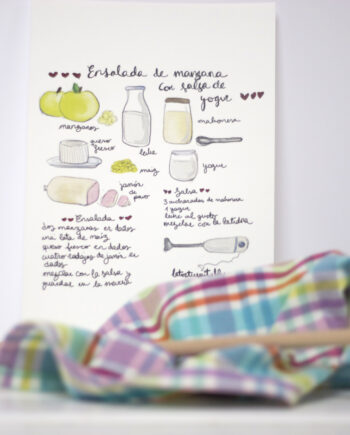 Ensalada de manzana
con salsa de
yogur
manzanas
mahonesa
queso
fresco
leche
maiz
yogur
jamón
de
pavo
Salsa
3 cucharadas de mahonesa
1 yogur
leche al gusto
mezclar con la batidora
Ensalada
dos manzanas en dados
una lata de maiz
queso fresco en dados
cuatro tadas de jamón en
dados
mezclar con la salsa y
guardar en la nevera